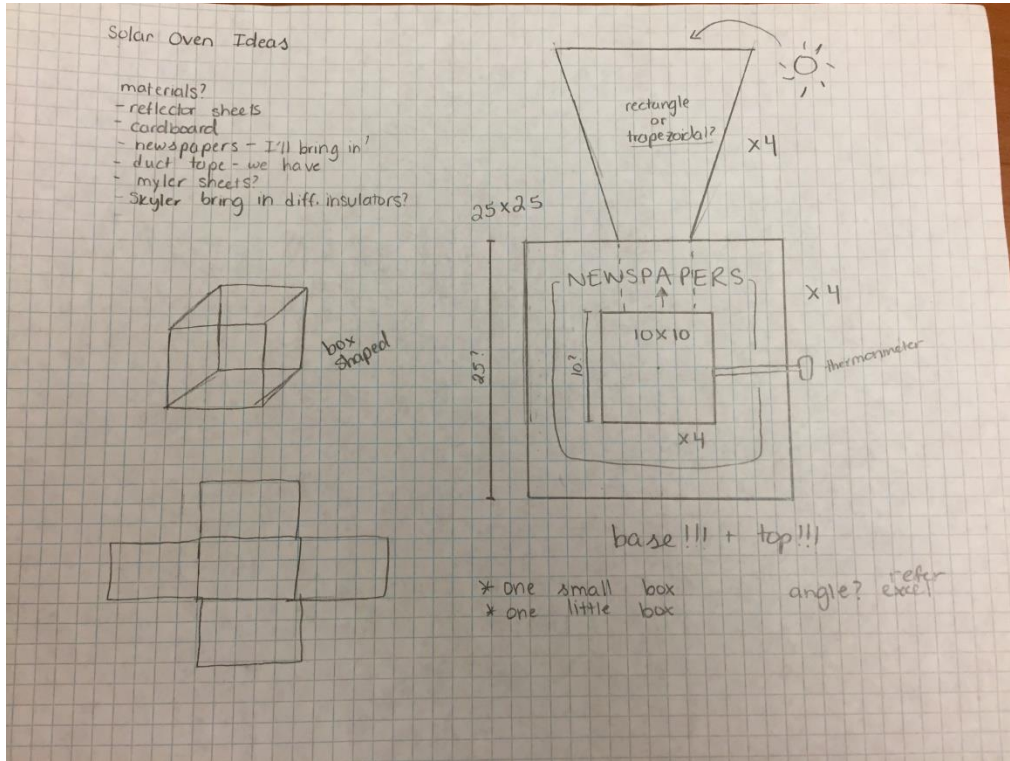 Solar Oven Ideas
materials?
- reflector sheets
- cardboard
- newspapers - I'll bring in!
- duct tape - we have
- myler sheets?
- Skyler bring in diff. insulators?
rectangle
or
trapezoidal?
x4
25x25
NEWSPAPERS
x4
25?
10?
10x10
thermonmeter
x4
box
shaped
base!!! + top!!!
* one small box
* one little box
angle? refer
excel